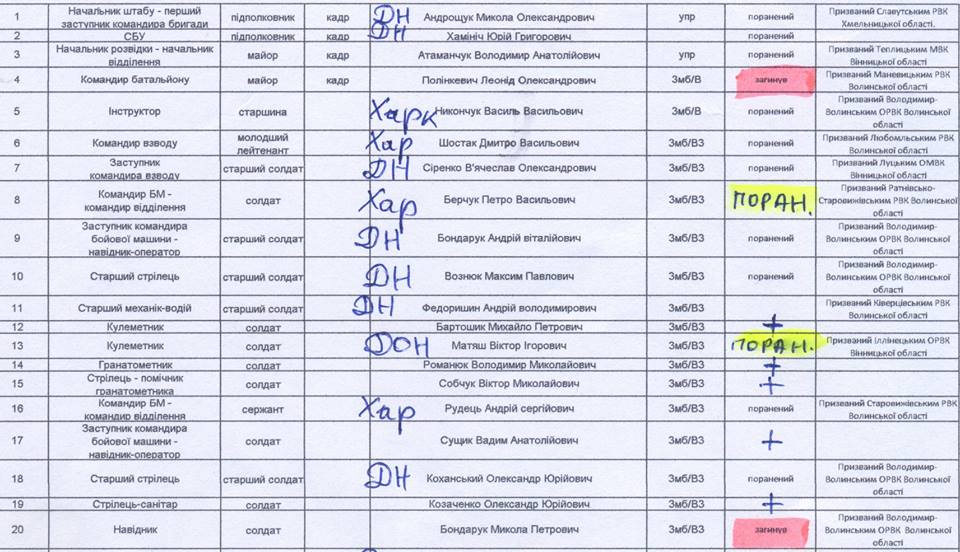 1 Начальник штабу - перший заступник командира бригади підполковник кадр ДН Андрощук Микола Олександрович упр поранений Призваний Славутським РВК Хмельницької області.
2 СБУ підполковник кадр ДН Хамініч Юрій Григорович поранений
3 Начальник розвідки - начальник відділення майор кадр Атаманчук Володимир Анатолійович упр поранений Призваний Теплицьким МВК Вінницької області
4 Командир батальйону майор кадр Полінкевич Леонід Олександрович 3мб/В загинув Призваний Маневицьким РВК Волинської області
5 Інструктор старшина Харк Никончук Василь Васильович 3мб/В поранений Призваний Володимир-Волинським ОРВК Волинської області
6 Командир взводу молодший лейтенант Хар Шостак Дмитро Васильович 3мб/В3 поранений Призваний Любомльським РВК Волинської області
7 Заступник командира взводу старший солдат ДН Сіренко В'ячеслав Олександрович 3мб/В3 поранений Призваний Луцьким ОМВК Вінницької області
8 Командир БМ - командир відділення солдат Хар Берчук Петро Васильович 3мб/В3 ПОРАН. Призваний Ратнівсько-Старовижівським РВК Волинської області
9 Заступник командира бойової машини - навідник-оператор старший солдат ДН Бондарук Андрій віталійович 3мб/В3 поранений Призваний Володимир-Волинським ОРВК Волинської області
10 Старший стрілець старший солдат ДН Вознюк Максим Павлович 3мб/В3 поранений Призваний Володимир-Волинським ОРВК Волинської області
11 Старший механік-водій старший солдат ДН Федоришин Андрій володимирович 3мб/В3 поранений Призваний Ківерцівським РВК Волинської області
12 Кулеметник солдат Бартошик Михайло Петрович 3мб/В3 +
13 Кулеметник солдат ДОН Матяш Віктор Ігорович 3мб/В3 ПОРАН. Призваний Іллінецьким ОРВК Вінницької області
14 Гранатометник солдат Романюк Володимир Миколайович 3мб/В3 +
15 Стрілець - помічник гранатометника солдат Собчук Віктор Миколайович 3мб/В3 +
16 Командир БМ - командир відділення сержант Хар Рудець Андрій сергійович 3мб/В3 поранений Призваний Старовижівським РВК Волинської області
17 Заступник командира бойової машини - навідник-оператор солдат Сущик Вадим Анатолійович 3мб/В3 +
18 Старший стрілець старший солдат ДН Коханський Олександр Юрійович 3мб/В3 поранений Призваний Володимир-Волинським ОРВК Волинської області
19 Стрілець-санітар солдат Козаченко Олександр Юрійович 3мб/В3 +
20 Навідник солдат Бондарук Микола Петрович 3мб/В3 загинув Призваний Володимир-Волинським ОРВК Волинської області